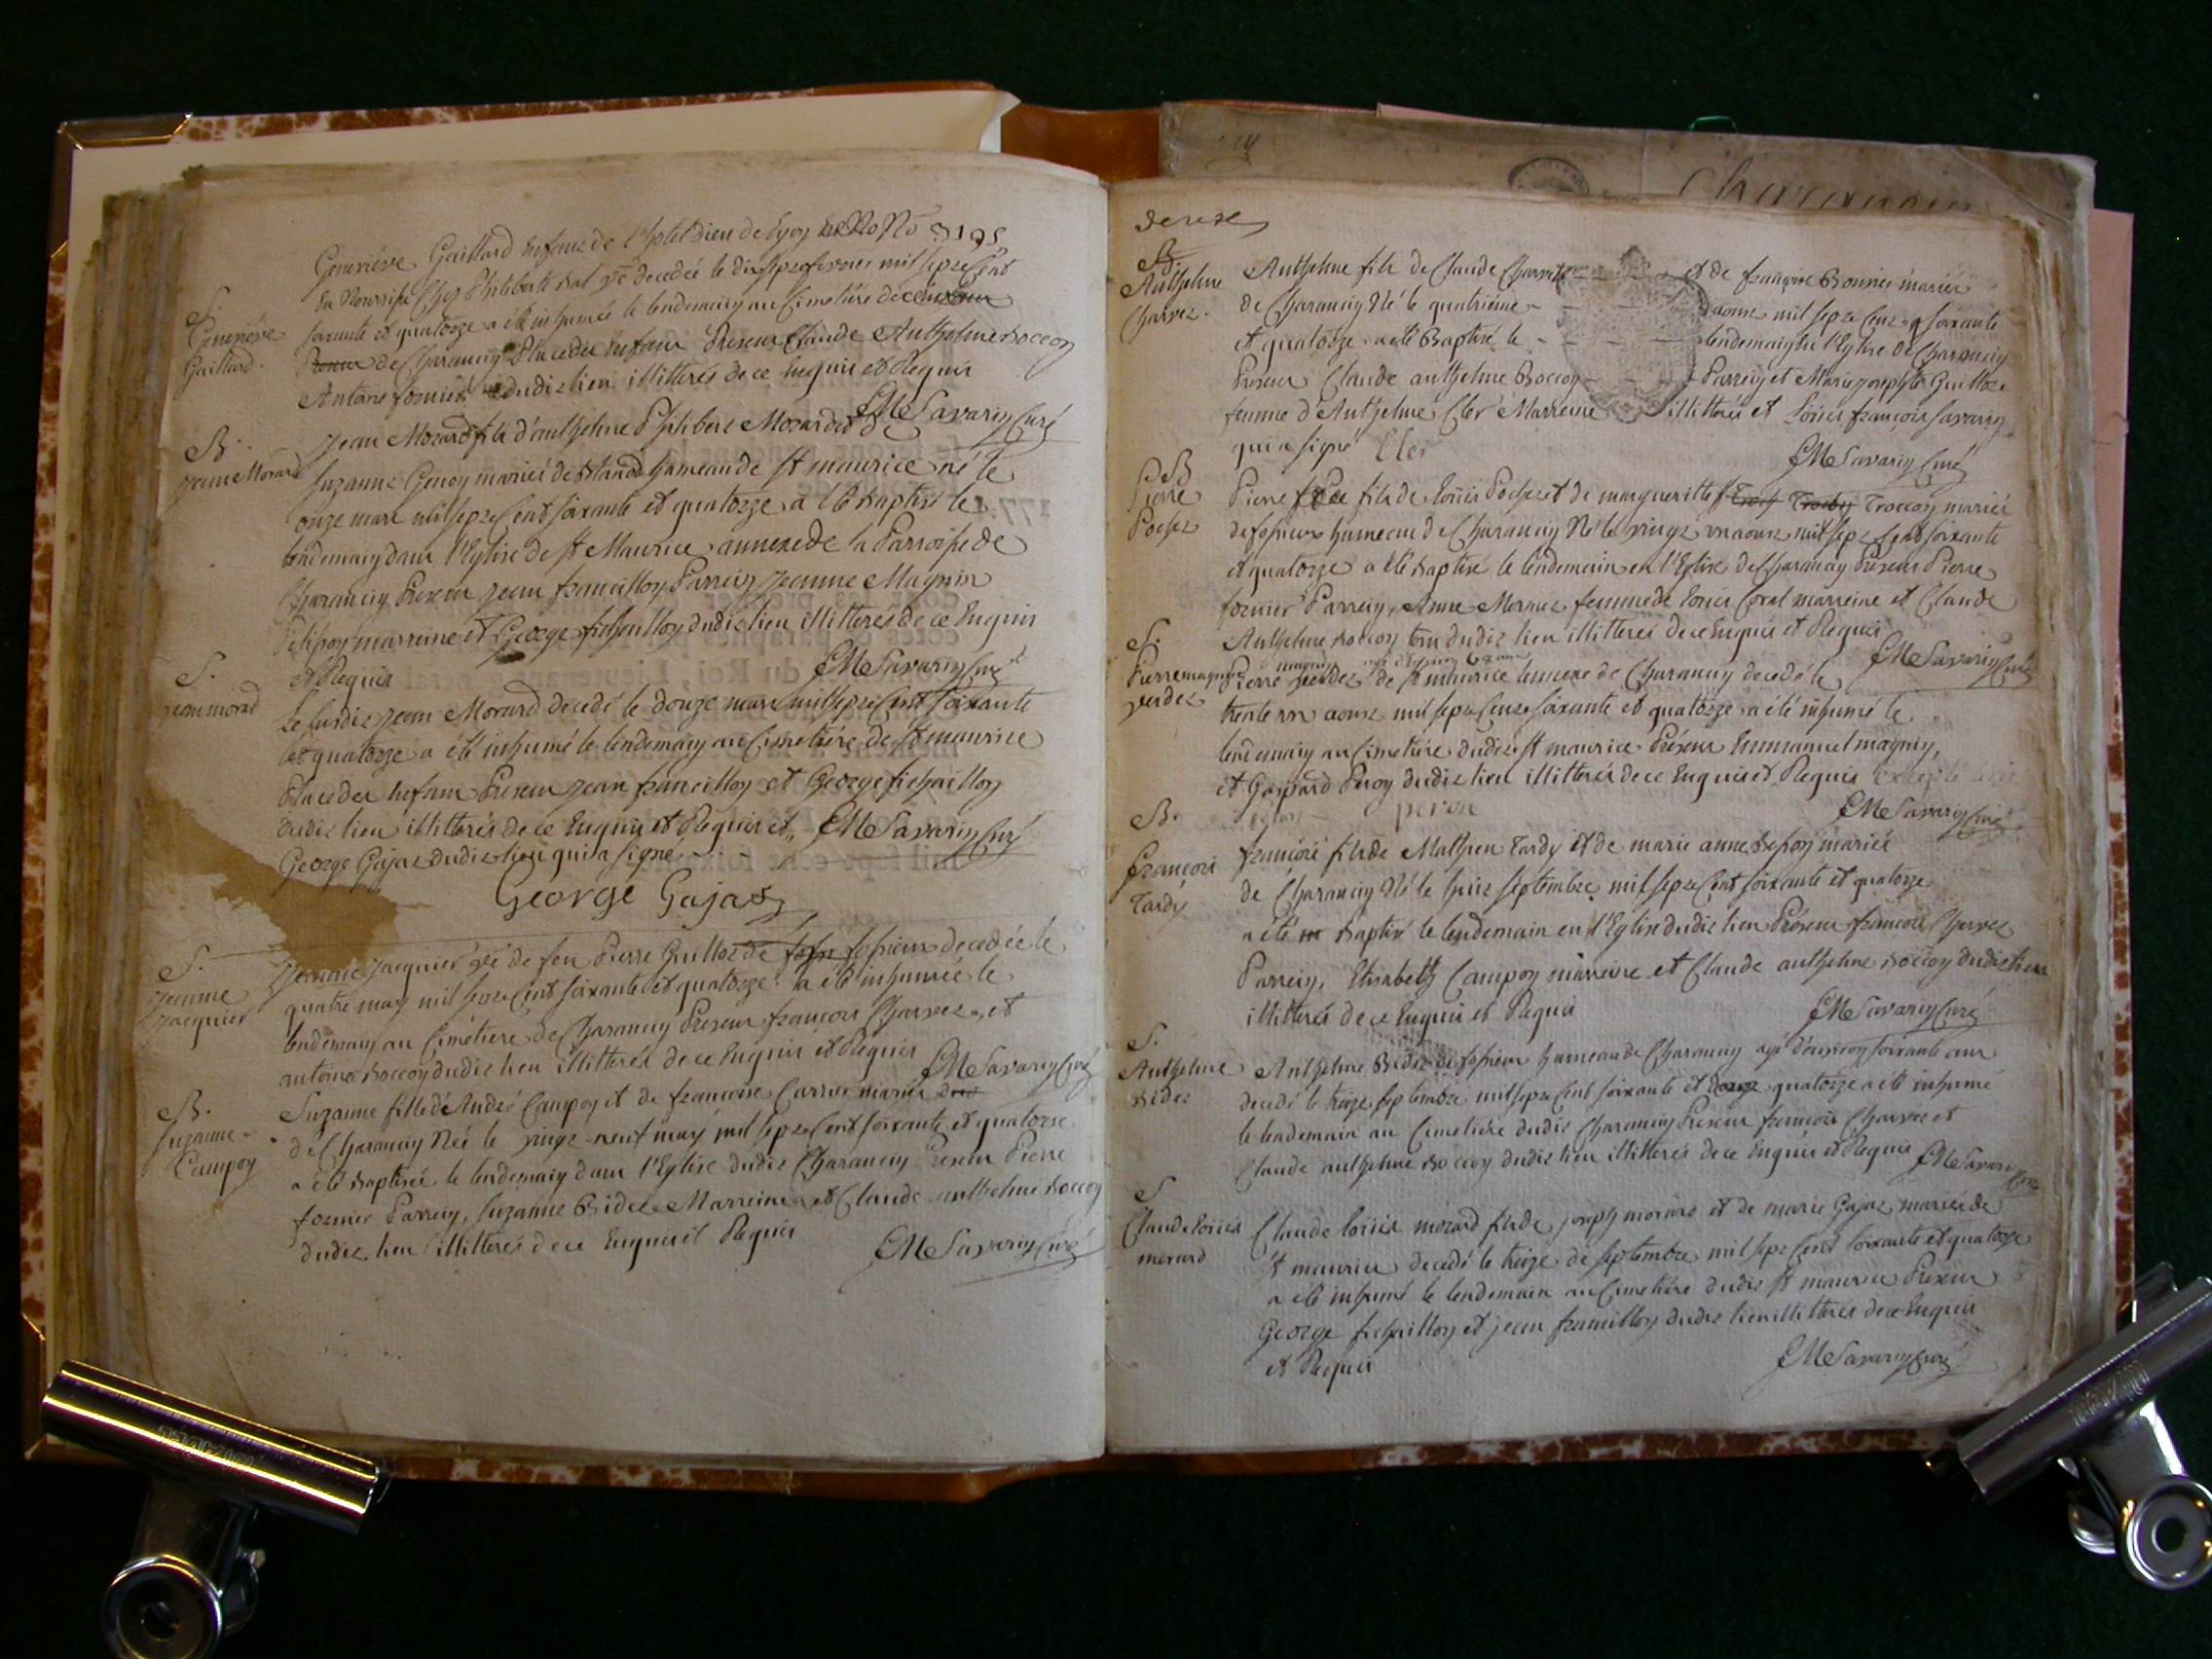 Geneviéve Gaillard Enfant de l'hotel Dieu de Lyon No 3195
En Nourrisse Chez Philiberte decedée le dix sept fevrier mil sept Cent
S.
Geneviéve
Gaillard.
soixante et quatorze a été inhumée le lendemain au Cimetiére
de Charancin Place des Enfans Présens Claude Anthelme Boccon
Antoine fornier dudit lieu illitterés de ce Enquis et Requis
EM Savarin Curé
B.
Jean Morard
Jean Morard fils d'anthelme Philibert Morard et de
Suzanne Genoy mariés de hameau de St maurice né le
onze mars mil sept Cent soixante et quatorze a été Baptisé le
lendemain dans l'Eglise de St Maurice annexe de la Parroisse de
Charancin Présens Jean francillon Parrein Jeanne Magnin
marreine et George fichaillon dudit lieu illitterés de ce Enquis
et Requis
EM Savarin Curé
S.
Jean morard
Le susdit Jean Morard decedé le douze mars mil sept Cent soixante
et quatorze a été inhumé le lendemain au Cimetiére de St maurice
Place des Enfans Présens Jean francillon et George fichaillon
dudit lieu illitterés de ce Enquis et Requis et EM Savarin Curé
George Gajat dudit lieu qui a signé
George Gajat
S.
Jeanne
Jacquier
Jeanne Jacquier de feu Pierre Guillot de sosieux decedée le
quatre may mil sept Cent soixante et quatorze a été inhumée le
lendemain au Cimétiére de Charancin Présens francois Charvet et
antoine Boccon dudit lieu illitterés de ce Enquis et Requis
EM Savarin Curé
B.
Suzanne
Campon
Suzanne fille de André Campon et de francoise Carrier mariés
de Charancin Née le vingt neuf may mil sept Cent soixante et quatorze
a été Baptisée le lendemain dans l'Eglise dudit Charancin Présens Pierre
fornier Parrein, Suzanne Bidet Marreine et Claude anthelme Boccon
dudit lieu illitterés de ce Enquis et Requis
EM Savarin Curé
B
Anthelme
Charvet.
Anthelme fils de Claude Charvet et de françoise Bonnier mariés
de Charancin Né le quatriéme aoust mil sept Cent soixante
et quatorze a été Baptisé le lendemain en l'Eglise de Charancin
Présens Claude anthelme Boccon Parrein et Marie Josephte Guillot
femme d'Anthelme Cler Marreine illitterés et Loüis françois Savarin
qui a signé Cler
EM Savarin Curé
B
Pierre
Pochet
Pierre fils de Loüis Pochet et de margueritte Troccon mariés
de sosieux hameau de Charancin Né le vingt un aoust mil sept Cent soixante
et quatorze a été Baptisé le lendemain en l'Eglise de Charancin Présens Pierre
fornier Parrein, Anne Mermet femme de Loüis Coral marreine et Claude
Anthelme Boccon tous dudit lieu illitterés de ce Enquis et Requis
EM Savarin Curé
S.
Pierre magnin
Pierre magnin de St maurice annexe de Charancin decedé le
trente un aoust mil sept Cent soixante et quatorze a été inhumé le
lendemain au Cimetiére dudit St maurice Présens Emmanuel magnin,
et Gaspard Peroy dudit lieu illitterés de ce Enquis et Requis
peron
EM Savarin Curé
B.
françois
Tardy
françois fils de Mathieu Tardy et de marie anne mariés
de Charancin Né le huit septembre mil sept Cent soixante et quatorze
a été Baptisé le lendemain en l'Eglise dudit lieu Présens francois Charvet
Parrein, Elisabeth Campon marreine et Claude anthelme Boccon dudit lieu
illitterés de ce Enquis et Requis
EM Savarin Curé
S.
Anthelme
Bidet
Anthelme Bidet de sosieux hameau de Charancin agé d'environ soixante ans
decedé le treize septembre mil sept Cent soixante et quatorze a été inhumé
le lendemain au Cimetiére dudit Charancin Présens francois Charvet et
Claude anthelme Boccon dudit lieu illitterés de ce Enquis et Requis
EM Savarin Curé
S
Claude Loüis
morard
Claude Loüis morard fils de joseph morard et de marie Gajat mariés de
St maurice decedé le treize de septembre mil sept Cent soixante et quatorze
a été inhumé le lendemain au Cimetiére dudit St maurice Présens
George fichaillon et jean francillon dudit lieu illitterés de ce Enquis
et Requis
EM Savarin Curé